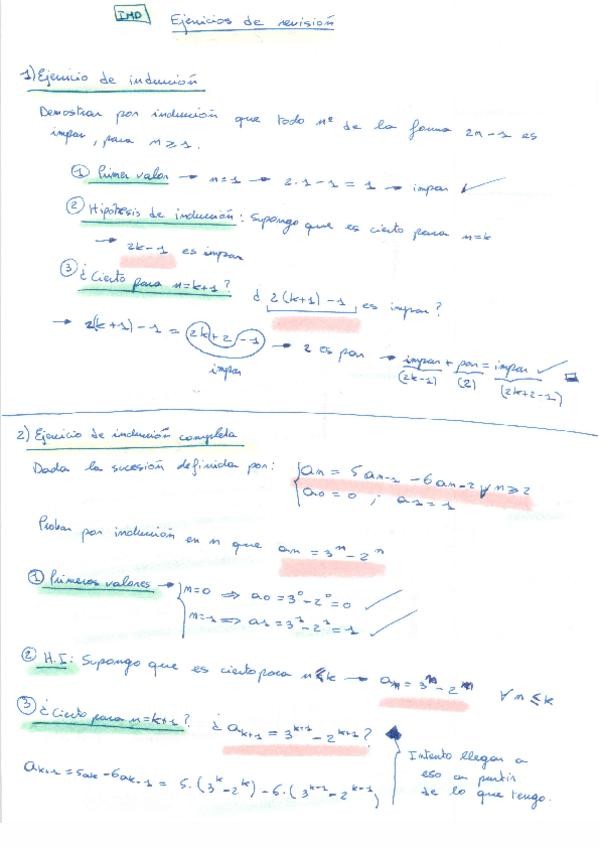 IMD Ejercicios de revisión
1) Ejercicio de inducción
Demostrar por inducción que todo nº de la forma 2n-1 es
impar, para n ≥ 1.
① Primer valor → n=1 → 2·1-1 = 1 → impar ✓
② Hipótesis de inducción: Supongo que es cierto para n=k
→ 2k-1 es impar
③ ¿Cierto para n=k+1? ¿ 2(k+1)-1 es impar?
→ 2(k+1)-1 = 2k+2-1 → 2 es par → impar + par = impar ✓
impar (2k-1) (2) (2k+2-1)
2) Ejercicio de inducción completa
Dada la sucesión definida por: { an = 5an-1 - 6an-2 ∀n≥2
a0=0 ; a1=1
Probar por inducción en n que an = 3^n - 2^n
① Primeros valores → { n=0 ⇒ a0=3^0-2^0=0 ✓
n=1 ⇒ a1=3^1-2^1=1 ✓
② H.I: Supongo que es cierto para n≤k → an = 3^n - 2^n ∀n≤k
③ ¿Cierto para n=k+1? ¿ ak+1 = 3^k+1 - 2^k+1?
Intento llegar a
eso a partir
de lo que tengo.
ak+1 = 5ak - 6ak-1 = 5·(3^k-2^k) - 6·(3^k-1 - 2^k-1)